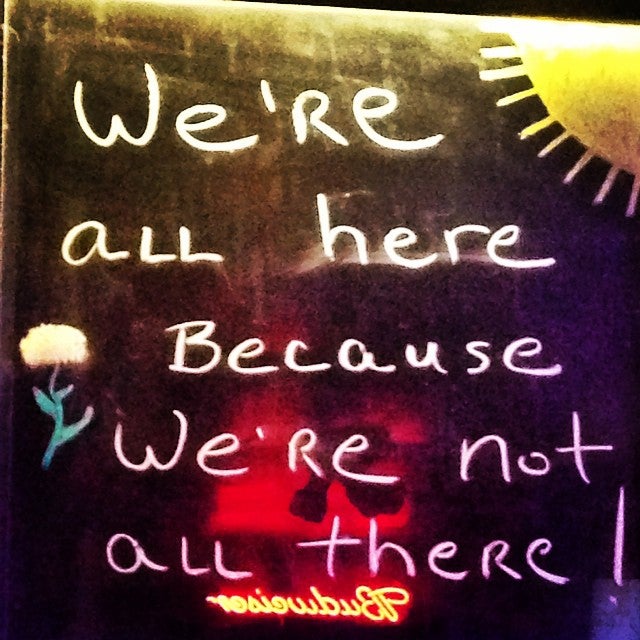 We're
all here
Because
We're not
all there!
Budweiser